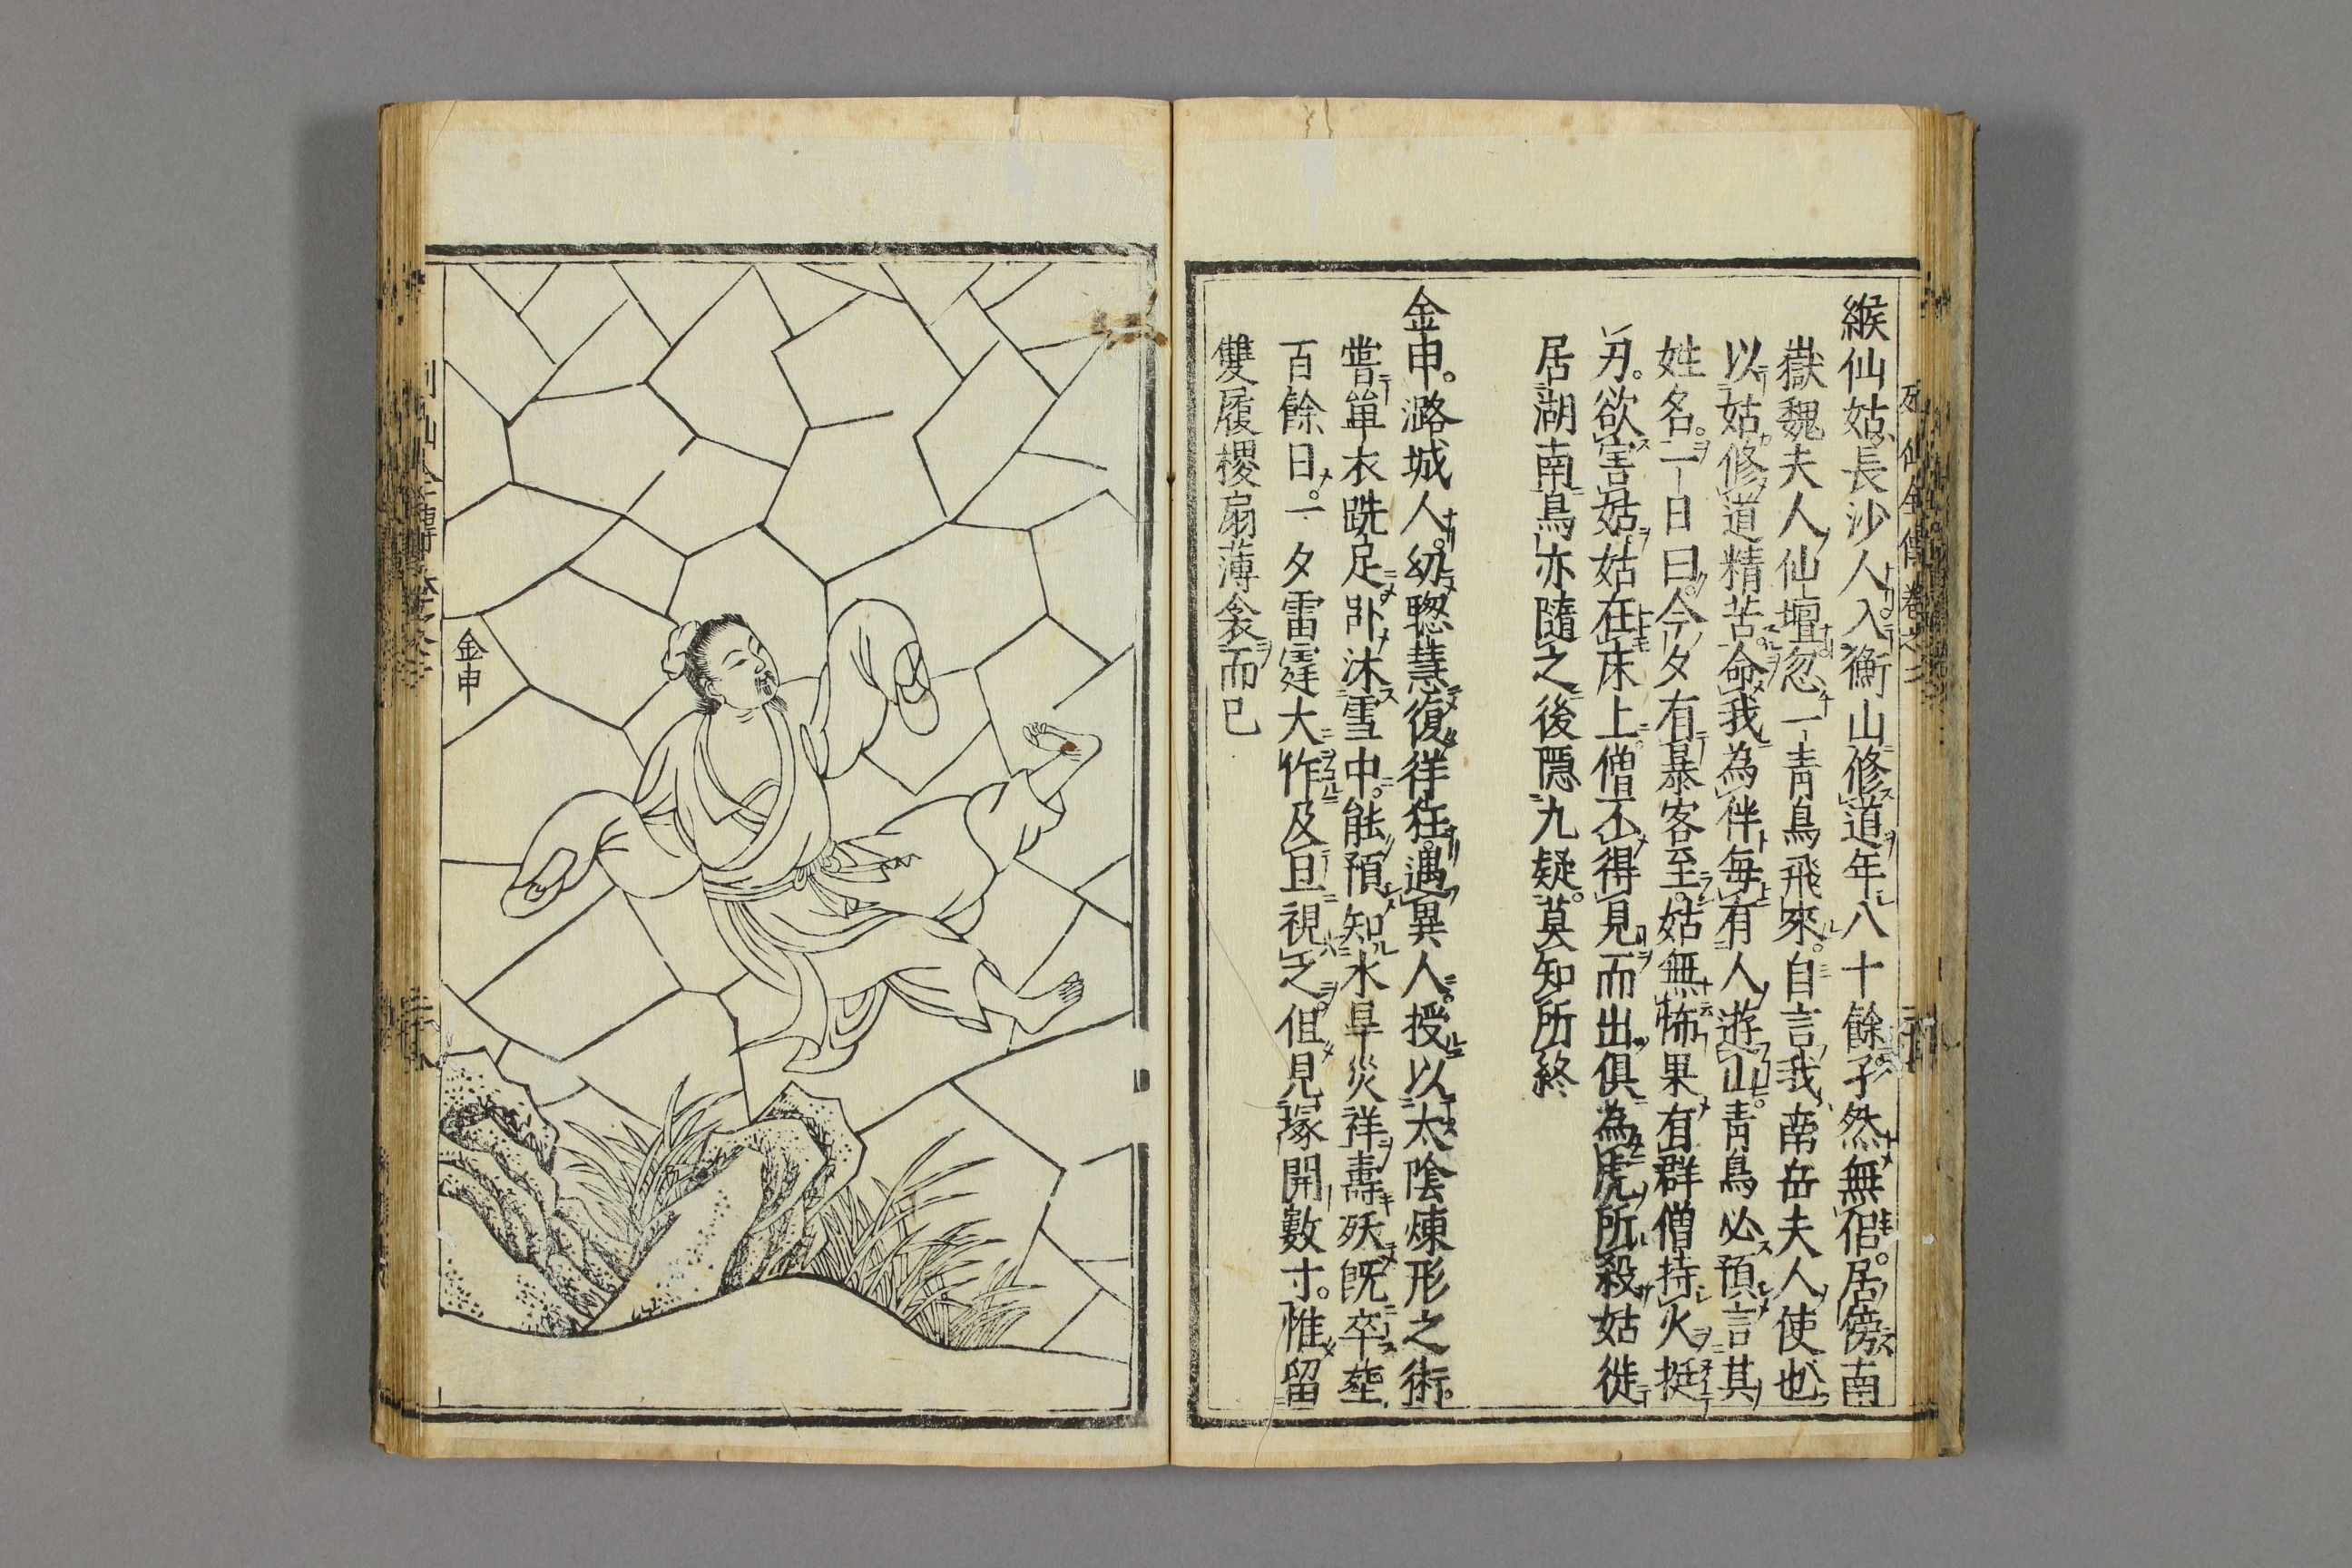 緱仙姑長沙人入衡山修道年八十餘孑然無侶。居傍南
嶽魏夫人仙壇忽一青鳥飛來。自言我南岳夫人使也
以姑修道精苦。命我為伴毎有人遊山。青鳥必預言其
姓名。一日曰。今夕有暴客至。姑無怖果有群僧持火挺
刃。欲害姑姑在床上僧不得見而出俱為虎所殺姑徙
居湖南鳥亦隨之後隱九疑。莫知所終
金申。潞城人。幼聦慧復徉狂。遇異人。授以太陰煉形之術。
嘗單衣跣足卧沐雪中。能預知水旱災祥壽殀既卒塟
百餘日。一夕雷霆大作及旦視之。但見塚開數寸。惟留
雙履椶扇薄衾而已
金申